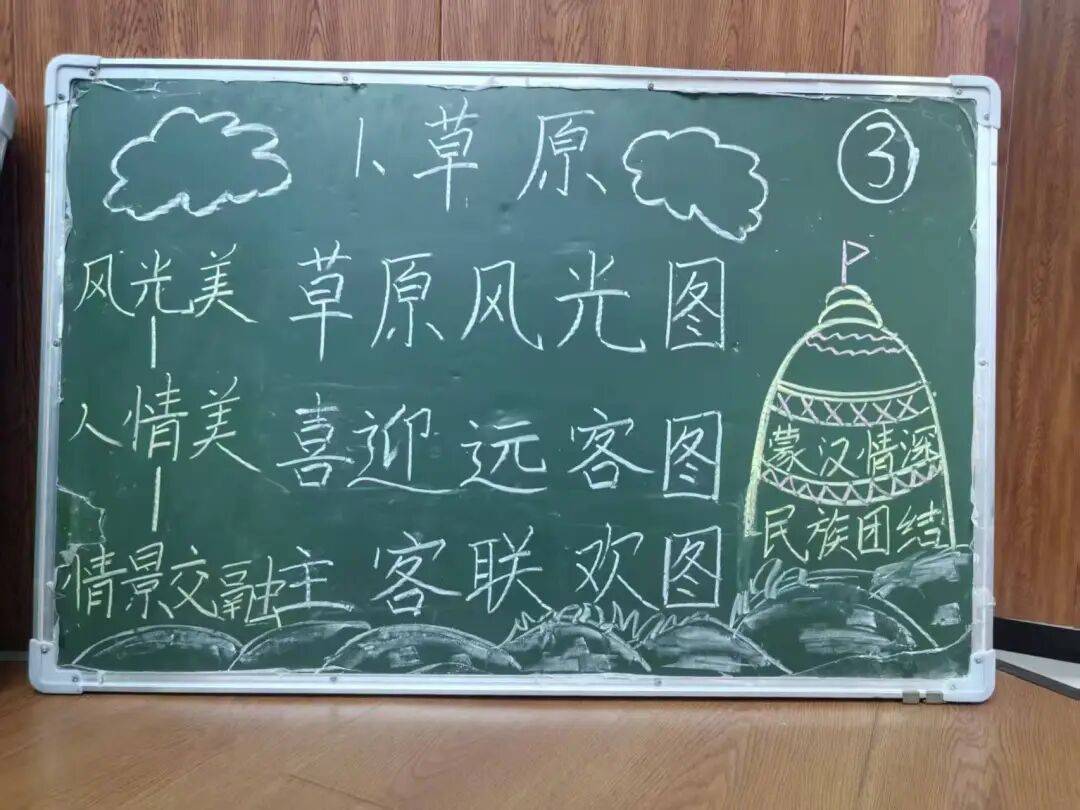 1、草原
③
风光美
草原风光图
人情美
喜迎远客图
情景交融
主客联欢图
蒙汉情深
民族团结